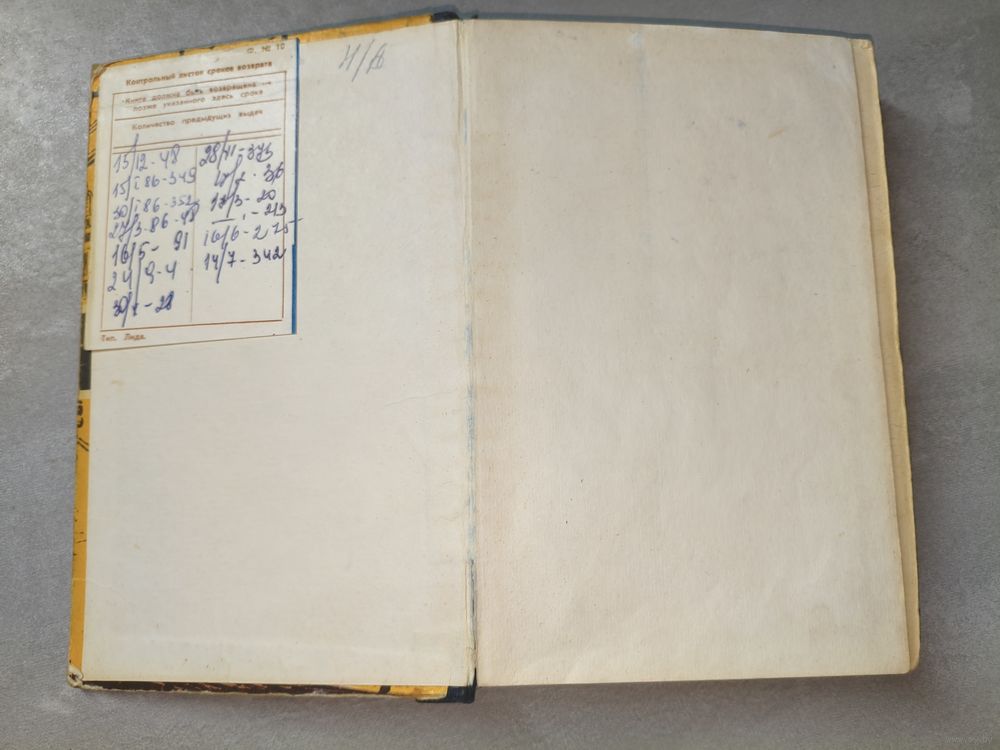 Ф. № 10
Контрольный листок сроков возврата
Книга должна быть возвращена не
позже указанного здесь срока
Количество предыдущих выдач
15/12-48
15/I 86-349
30/I 86-352
27/3-86-48
16/5- 91
24/9-4
28/XI-375
17/3-20
16/6-275
14/7-342
Тип. Лида.